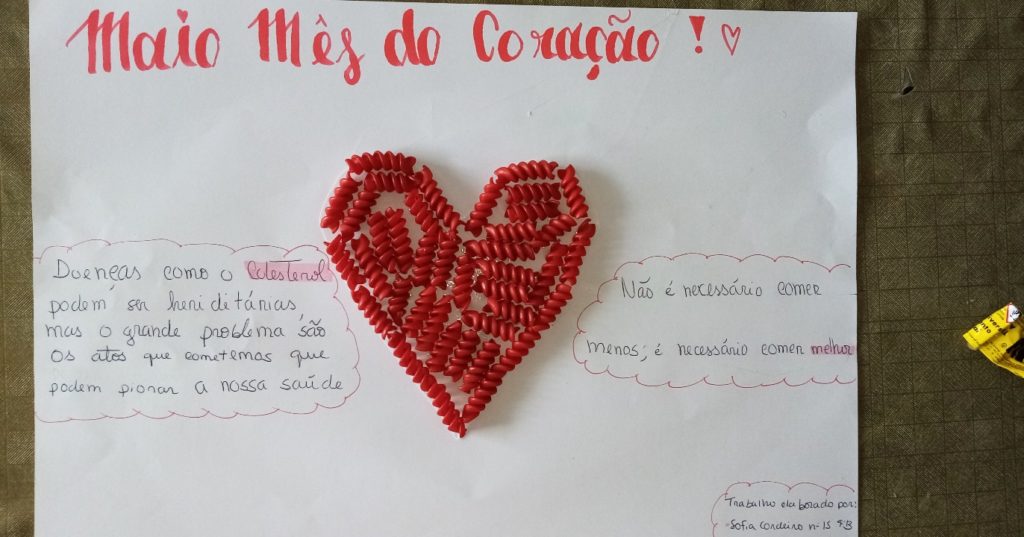 Maio Mês do Coração !
Doenças como o Colesterol
podem ser heriditárias,
mas o grande problema são
os atos que cometemos que
podem piorar a nossa saúde
Não é necessário comer
menos, é necessário comer melhor
Trabalho elaborado por:
-Sofia Cordeiro nº15